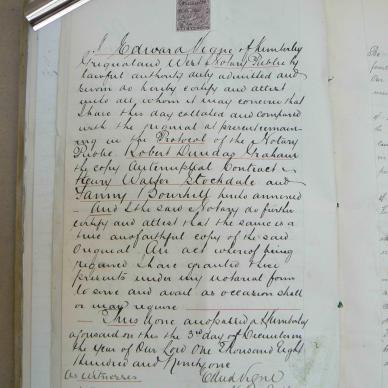 I Edward Vigne of Kimberley
Griqualand West Notary Public by
lawful authority duly admitted and
sworn do hereby certify and attest
unto all whom it may concern that
I have this day collated and compared
with the original at present remain-
ing in the Protocol of the Notary
Public Robert Dundas Graham
the copy Antenuptial Contract
Henry Walter Stockdale and
Fanny Bourhill hereto annexed
And I the said Notary do further
certify and attest that the same is a
true and faithful copy of the said
Original An act whereof being
required I have granted these
presents under my notarial form
to serve and avail as occasion shall
or may require
Thus done and passed at Kimberley
aforesaid on this the 3rd day of December in
the year of Our Lord One thousand Eight
Hundred and Ninety one
As Witnesses